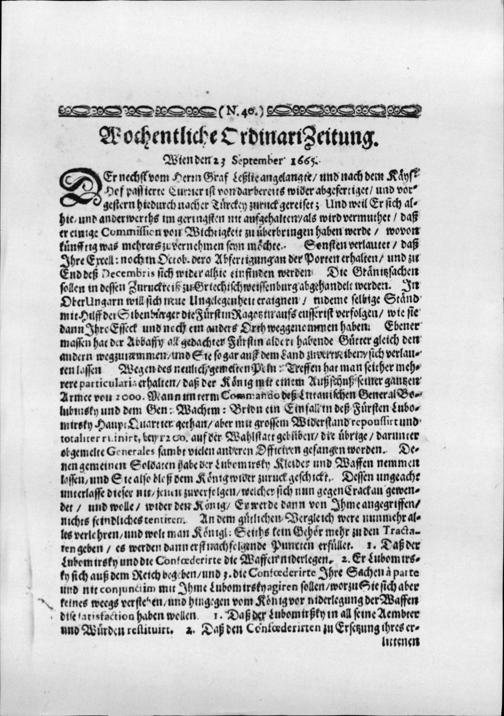 (N. 40.)
Wochentliche Ordinari Zeitung.
Wien den 23 September 1665.
DEr nechst vom Herrn Graf Leßlie angelangte/ und nach dem Käys.
Hof passierte Currier ist von dar bereits wider abgefertiget/ und vor-
gestern hiedurch nacher Türckey zuruck gereiset; Und weil Er sich al-
hie und anderwerths im geringsten nit aufgehalten/ als wird vermuthet / daß
er einige Commission von Wichtigkeit zu überbringen haben werde / wovon
künfftig was mehrers zu vernehmen seyn möchte. Sonsten verlautet / daß
Ihre Excell: noch in Octob. dero Abfertigung an der Porten erhalten / und zu
End deß Decembris sich wider alhie einfinden werden Die Gränitzsachen
sollen in dessen Zuruckreiß zu Griechischweissenburg abgehandelt werden. In
Ober Ungarn will sich neue Ungelegenheit eraignen / indeme selbige Ständ
mit Hilff den Sibenbürger die Fürstin Ragotzin aufs eusserist verfolgen / wie sie
dann Ihr Esseck und noch ein anders Orth weggenommen haben. Ebener
massen hat der Abbaffy all gedachter Fürstin aldort habende Güter gleich den
andern wegzunemmen / und Sie sogar auß dem Land zu vertreiben / sich verlau-
ten lassen Wegen des neulich gemelten Treffen hat man seither meh-
rere particularia erhalten / daß der König mit einem Außschuß seiner gantzen
Armee von 2000. Mann unterm Commando deß Littauischen General Bo-
lubinsky und dem Gen: Wachtm: Brion ein Einfall in deß Fürsten Lubo-
mirsky Haupt Quartier gethan / aber mit grossem Widerstand repoussirt und
totaliter ruinirt, bey 1200. auf der Wahlstatt gebliben / die übrige / darunter
obgemelte Generales sambt vielen anderen Officiren gefangen worden. De-
nen gemeinen Soldaten habe der Lubomirsky Kleider und Waffen nemmen
lassen / und Sie also bloß dem König wider zuruck geschickt. Dessen ungeacht
unterlasse dieser nit / jenen zu verfolgen / welcher sich nun gegen Crackau gewen-
det / und wolle / wider den König / Er werde dann von Ihme angegriffen /
nichts feindliches tentiren. An dem gütlichen Vergleich were nunmehr al-
les verlohren / und wolt man Königl: Seiths kein Gehör mehr zu den Tracta-
ten geben / es werden dann erst nachfolgende Puncten erfüllet. 1. Daß der
Lubomirsky und die Confœderirte die Waffen niderlegen. 2. Er Lubomirs-
ky sich auß dem Reich begeben / und 3. die Confœderirte Ihre Sachen à parte
und nit conjunctim mit Ihme Lubomirsky agiren sollen / worzu Sie sich aber
keines weegs verstehen / und hingegen vom König vor niderlegung der Waffen
dise satisfaction haben wollen. 1. Daß der Lubomirßky in all seine Aembter
und Würden restituirt. 2. Daß den Confœderirten zu Ersetzung ihres er-
littenen